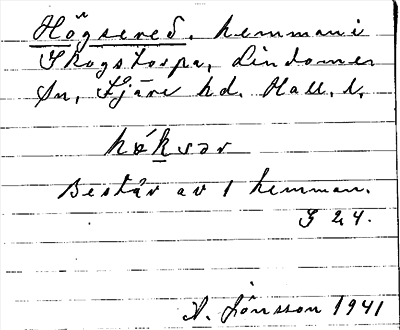 Högsered. hemman i
Skogstorpa, Lindomes
sn, Fjäre hd. Hall. l.
hǿksər
Består av 1 hemman.
G 24.
A. Jönsson 1941